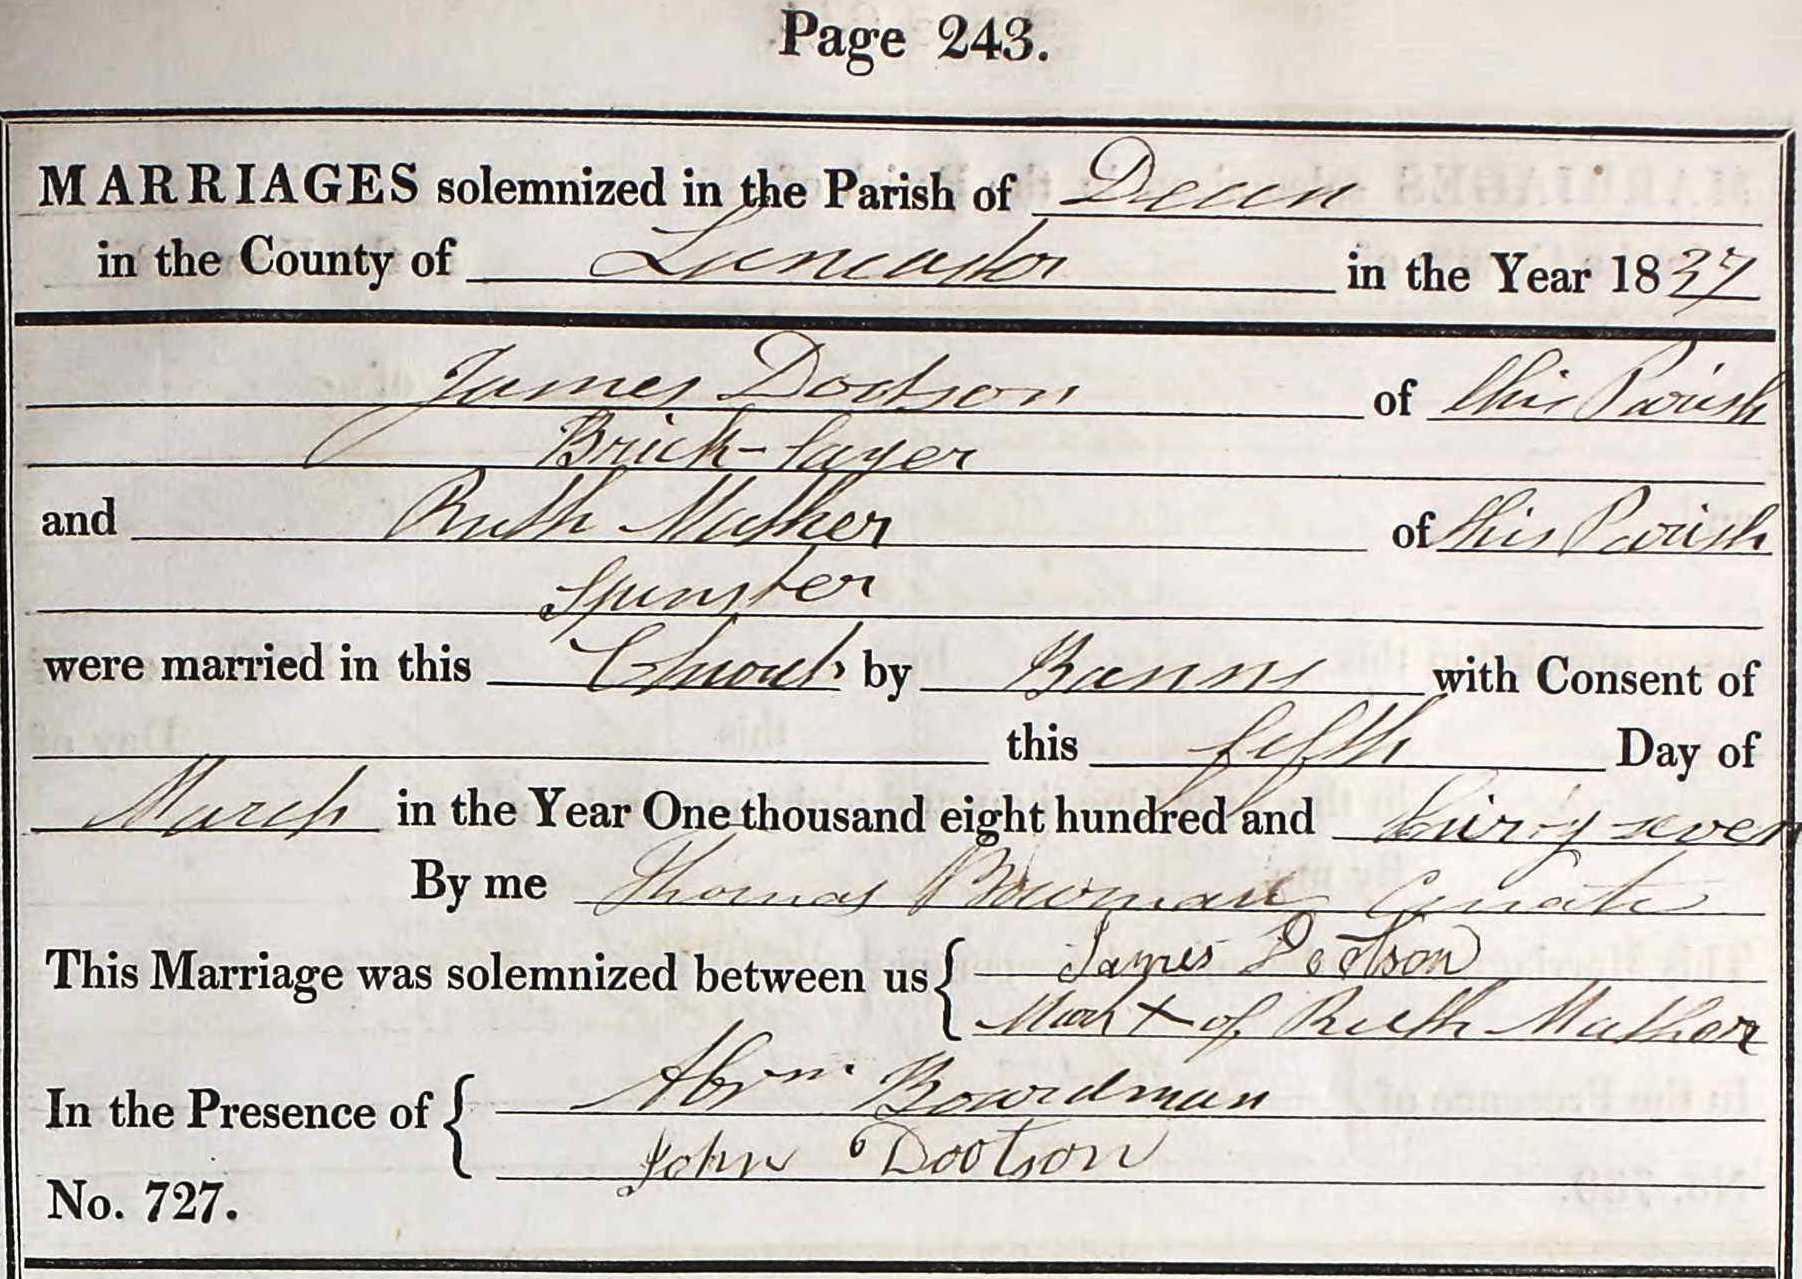 Page 243.
MARRIAGES solemnized in the Parish of Dean
in the County of Lancaster in the Year 1837
James Dootson of this Parish
Brick-layer
and Ruth Mather of this Parish
Spinster
were married in this Church by Banns with Consent of
this fifth Day of
March in the Year One thousand eight hundred and thirty seven
By me Thomas Bowman Curate
This Marriage was solemnized between us { James Dootson
Mark X of Ruth Mather
In the Presence of { Abrm. Boardman
John Dootson
No. 727.